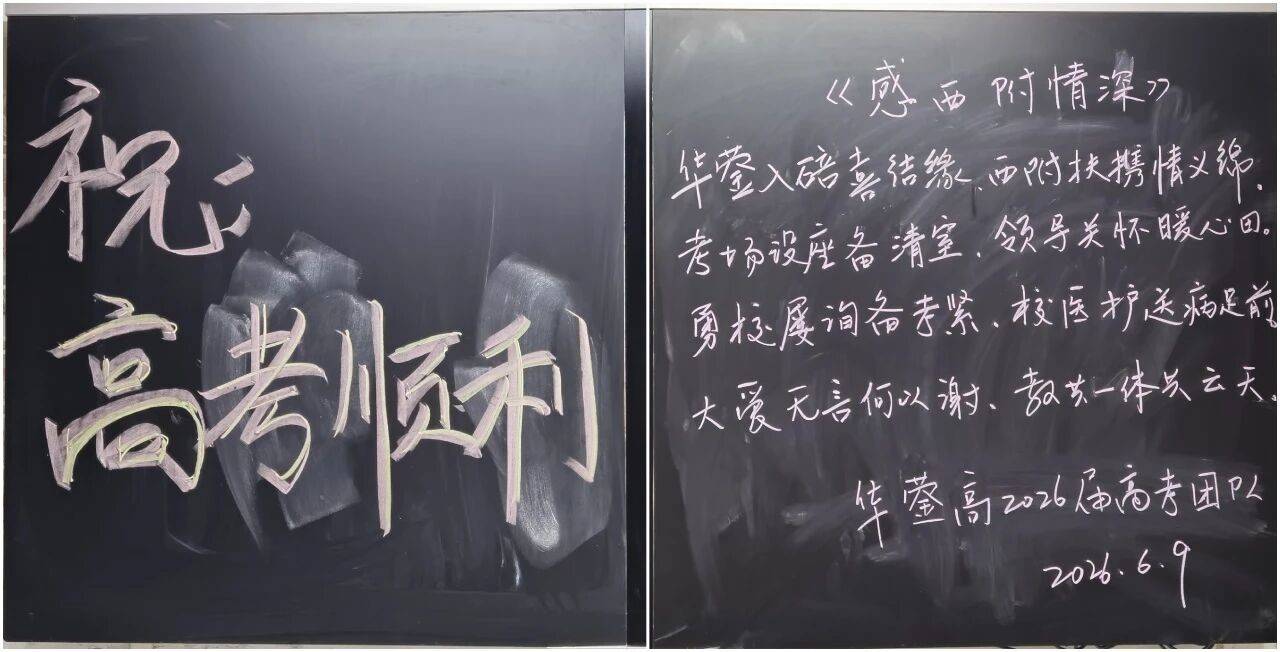 祝:
高考顺利
《感西附情深》
华蓥入碚喜结缘、西附扶携情义绵.
考场设座备清室、领导关怀暖心田。
勇校屡询备考紧、校医护送病足前
大爱无言何以谢、教共一体共云天.
华蓥高2026届高考团队
2026.6.9